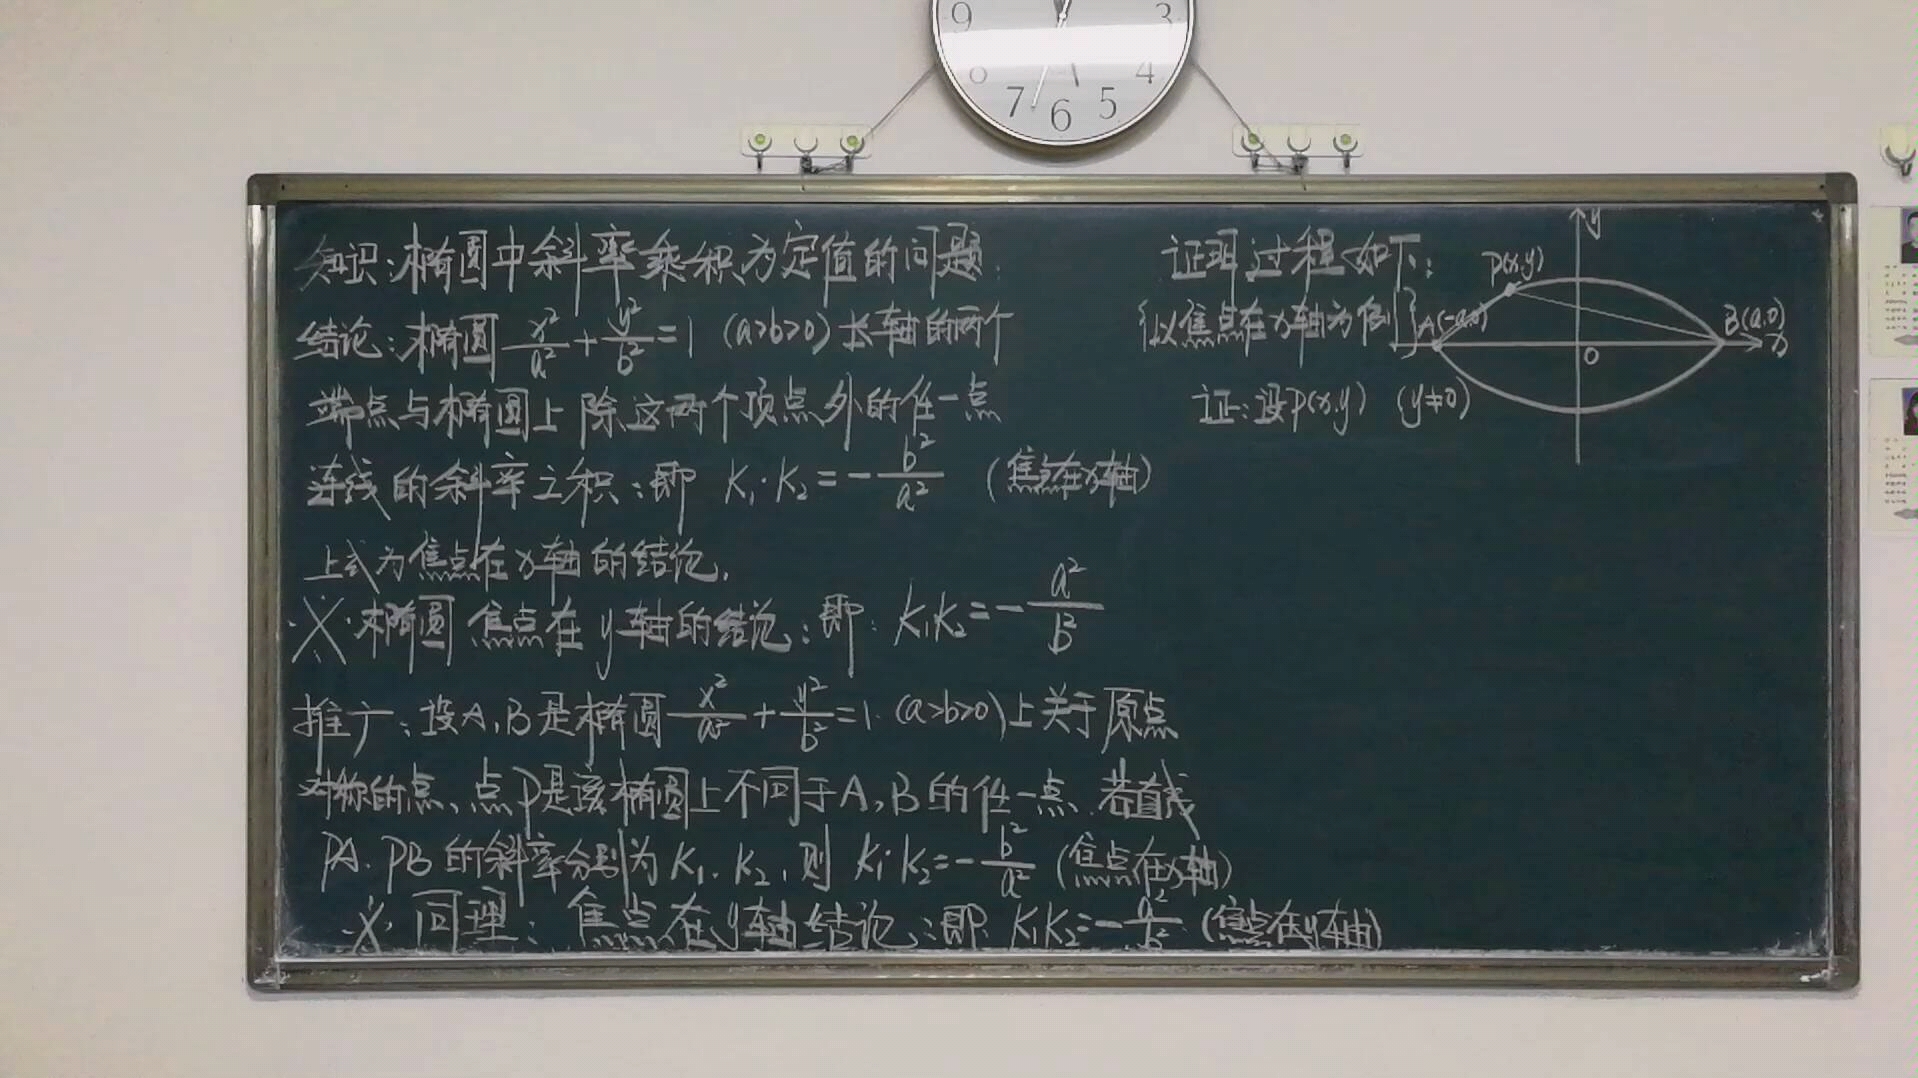 9 3
8 4
7 6 5
知识:椭圆中斜率乘积为定值的问题.
结论:椭圆 x²/a² + y²/b² = 1 (a>b>0) 长轴的两个
端点与椭圆上除这两个顶点外的任一点
连线的斜率之积:即 K₁·K₂ = -b²/a² (焦点在x轴)
上式为焦点在x轴的结论.
※ 椭圆焦点在y轴的结论:即: K₁K₂ = -a²/b²
推广:设A,B是椭圆 x²/a² + y²/b² = 1. (a>b>0)上关于原点
对称的点、点P是该椭圆上不同于A,B的任一点.若直线
PA.PB的斜率分别为K₁.K₂,则 K₁·K₂ = -b²/a² (焦点在x轴)
※ 同理:焦点在y轴结论:即: K₁K₂ = -a²/b² (焦点在y轴)
证明过程如下:
{以焦点在x轴为例}
证:设P(x,y) (y≠0)
y
P(x,y)
A(-a,0)
B(a,0)
O
x